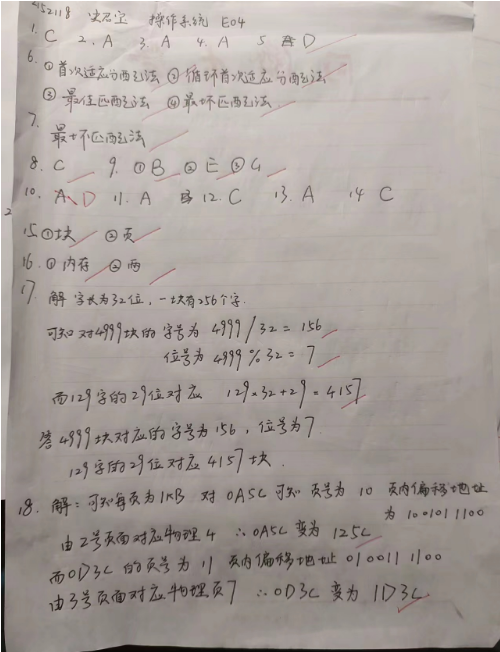 2152118 操作系统 E04
1. C 2. A 3. A 4. A 5 D
6. ①首次适应分配法 ②循环首次适应分配法
③最佳匹配法 ④最坏匹配法
7. 最坏匹配法
8. C 9. ①B ②E ③G
10. A D 11. A 12. C 13. A 14 C
15. ①块 ②页
16. ①内存 ②两
17. 解 字长为32位，一块有256个字.
可知 对4999块的 字号为 4999/32 = 156
位号为 4999%32 = 7
而129字的29位对应 129×32+29 = 4157
答 4999块对应的字号为156，位号为7.
129字的29位对应 4157块.
18. 解：可知每页为1KB 对 0A5C 可知 页号为 10 页内偏移地址
为 1001011100
由2号页面对应物理4 ∴0A5C 变为 125C
而0D3C 的页号为 11 页内偏移地址 0100111100
由3号页面对应物理页7 ∴0D3C 变为 1D3C